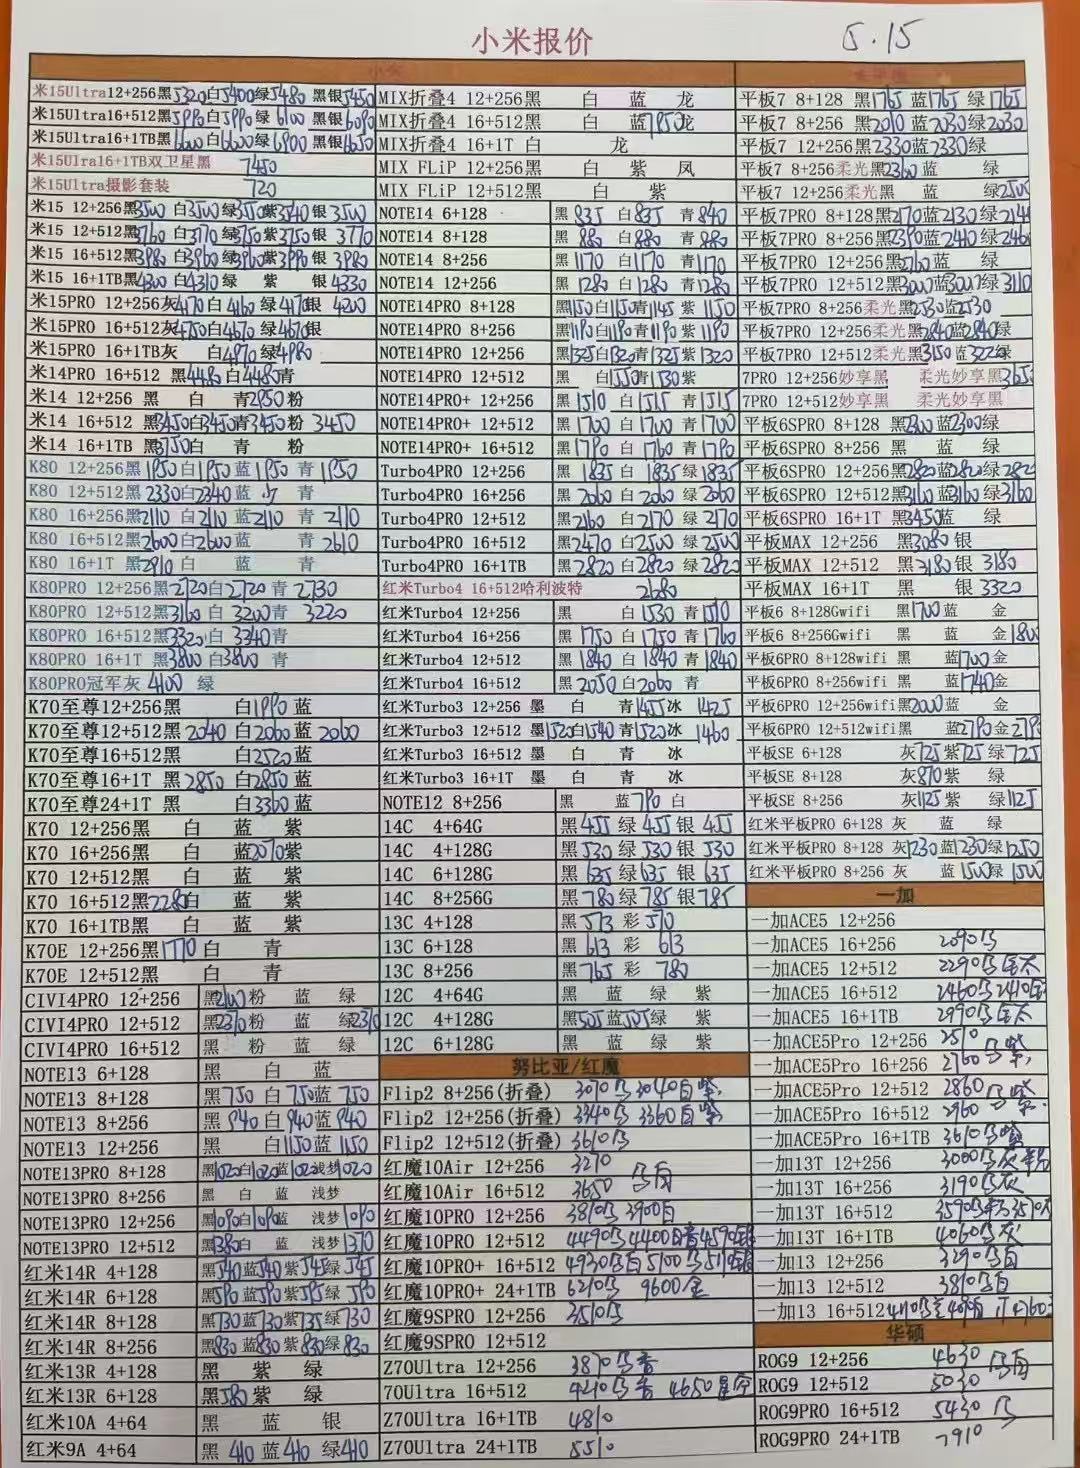 小米报价
5.15
米15Ultra12+256黑5320白5400绿5480 黑银5450
米15Ultra16+512黑5990白5990绿6100 黑银6090
米15Ultra16+1TB黑6600白6600绿6900黑银6650
米15Ulra16+1TB双卫星黑 7450
米15Ultra摄影套装 720
米15 12+256黑3500 白3500绿3550紫3540银 3500
米15 12+512黑3760 白3770绿3750紫3750银 3770
米15 16+512黑3980 白3960绿3960紫3990银 3980
米15 16+1TB黑4300白4310绿 紫 银4330
米15PRO 12+256灰4170白4160绿4170银 4200
米15PRO 16+512灰4750白4670绿4670银
米15PRO 16+1TB灰 白4970绿4980
米14PRO 16+512 黑4480白4480青
米14 12+256 黑 白 青2950粉
米14 16+512 黑3450白3450青3450粉 3450
米14 16+1TB 黑3750白 青 粉
K80 12+256黑1950白1950蓝1950青1950
K80 12+512黑2330白2340蓝 青
K80 16+256黑2110白2110蓝2110青2110
K80 16+512黑2600白2600蓝 青2610
K80 16+1T 黑2910白 蓝 青
K80PRO 12+256黑2720白2720青2730
K80PRO 12+512黑3160白3200青3220
K80PRO 16+512黑3320白3340青
K80PRO 16+1T 黑3800白3800青
K80PRO冠军灰 4100 绿
K70至尊12+256黑 白1990蓝
K70至尊12+512黑2040白2060蓝2060
K70至尊16+512黑 白2520蓝
K70至尊16+1T 黑2850白2850蓝
K70至尊24+1T 黑 白3360蓝
K70 12+256黑 白 蓝 紫
K70 16+256黑 白 蓝2070紫
K70 12+512黑 白 蓝 紫
K70 16+512黑2280白 蓝 紫
K70 16+1TB黑 白 蓝 紫
K70E 12+256黑1770白 青
K70E 12+512黑 白 青
CIVI4PRO 12+256 黑2100粉 蓝 绿
CIVI4PRO 12+512 黑2370粉 蓝 绿2370
CIVI4PRO 16+512 黑 粉 蓝 绿
NOTE13 6+128 黑 白 蓝
NOTE13 8+128 黑750白750蓝750
NOTE13 8+256 黑940白940蓝940
NOTE13 12+256 黑 白1150蓝1150
NOTE13PRO 8+128 黑1020白1020蓝1020浅梦1020
NOTE13PRO 8+256 黑 白 蓝 浅梦
NOTE13PRO 12+256 黑1090白1090蓝 浅梦1090
NOTE13PRO 12+512 黑1380白 蓝 浅梦1370
红米14R 4+128 黑540蓝540紫545绿545
红米14R 6+128 黑590蓝590紫595绿590
红米14R 8+128 黑730蓝730紫735绿730
红米14R 8+256 黑830蓝830紫830绿830
红米13R 4+128 黑 紫 绿
红米13R 6+128 黑580紫 绿
红米10A 4+64 黑 蓝 银
红米9A 4+64 黑 410蓝410绿410
MIX折叠4 12+256黑 白 蓝 龙
MIX折叠4 16+512黑 白 蓝7950龙
MIX折叠4 16+1T 白 龙
MIX FLiP 12+256黑 白 紫 凤
MIX FLiP 12+512黑 白 紫
NOTE14 6+128 黑835白835青840
NOTE14 8+128 黑880白880青880
NOTE14 8+256 黑1170白1170青1170
NOTE14 12+256 黑1280白1280青1280
NOTE14PRO 8+128 黑1150白1150青1145紫1150
NOTE14PRO 8+256 黑1190白1190青1190紫1190
NOTE14PRO 12+256 黑1325白1320青1325紫1320
NOTE14PRO 12+512 黑 白1550青1530紫
NOTE14PRO+ 12+256 黑1510白1515青1515
NOTE14PRO+ 12+512 黑1700白1700青1700
NOTE14PRO+ 16+512 黑1790白1760青1790
Turbo4PRO 12+256 黑1835白1835绿1835
Turbo4PRO 16+256 黑2060白2060绿2060
Turbo4PRO 12+512 黑2160白2170绿2170
Turbo4PRO 16+512 黑2470白2500绿2500
Turbo4PRO 16+1TB 黑2820白2820绿2820
红米Turbo4 16+512哈利波特 2680
红米Turbo4 12+256 黑 白1530青1510
红米Turbo4 16+256 黑1750白1750青1760
红米Turbo4 12+512 黑1840白1840青1840
红米Turbo4 16+512 黑2050白2060青
红米Turbo3 12+256 墨 白 青1455冰1425
红米Turbo3 12+512 墨1520白1540青1520冰1460
红米Turbo3 16+512 墨 白 青 冰
红米Turbo3 16+1T 墨 白 青 冰
NOTE12 8+256 黑 蓝790白
14C 4+64G 黑455绿455银455
14C 4+128G 黑530绿530银530
14C 6+128G 黑635绿635银635
14C 8+256G 黑780绿785银785
13C 4+128 黑513彩510
13C 6+128 黑613彩613
13C 8+256 黑765彩780
12C 4+64G 黑 蓝 绿 紫
12C 4+128G 黑505蓝505绿 紫
12C 6+128G 黑 蓝 绿 紫
努比亚/红魔
Flip2 8+256(折叠) 3070乌3040白紫
Flip2 12+256(折叠) 3340乌3360白紫
Flip2 12+512(折叠) 3610乌
红魔10Air 12+256 3270
红魔10Air 16+512 3650 乌白
红魔10PRO 12+256 3810乌3900白
红魔10PRO 12+512 4490乌4400白
红魔10PRO+ 16+512 4930乌白5100乌
红魔10PRO+ 24+1TB 6210乌 9600金
红魔9SPRO 12+256 3510乌
红魔9SPRO 12+512
Z70Ultra 12+256 3870乌青
70Ultra 16+512 4210乌青4650星空
Z70Ultra 16+1TB 4810
Z70Ultra 24+1TB 5510
平板7 8+128 黑1765蓝1765绿1765
平板7 8+256 黑2010蓝2030绿2030
平板7 12+256黑2330蓝2330绿
平板7 8+256柔光黑2360蓝 绿
平板7 12+256柔光黑 蓝 绿2500
平板7PRO 8+128黑2170蓝2130绿2140
平板7PRO 8+256黑2390蓝2410绿2460
平板7PRO 12+256黑2760蓝 绿
平板7PRO 12+512黑3000蓝3000绿3110
平板7PRO 8+256柔光黑2530蓝2530
平板7PRO 12+256柔光黑2840蓝2840绿
平板7PRO 12+512柔光黑3150蓝3220绿
7PRO 12+256妙享黑 柔光妙享黑3650
7PRO 12+512妙享黑 柔光妙享黑
平板6SPRO 8+128 黑2300蓝2300绿
平板6SPRO 8+256 黑 蓝 绿
平板6SPRO 12+256黑2820蓝2820绿2820
平板6SPRO 12+512黑3160蓝3160绿3160
平板6SPRO 16+1T 黑3450蓝 绿
平板MAX 12+256 黑3080银
平板MAX 12+512 黑3180银3180
平板MAX 16+1T 黑 银3320
平板6 8+128Gwifi 黑1700蓝 金
平板6 8+256Gwifi 黑 蓝 金1800
平板6PRO 8+128wifi 黑 蓝1700金
平板6PRO 8+256wifi 黑 蓝1740金
平板6PRO 12+256wifi黑2000蓝 金
平板6PRO 12+512wifi黑 蓝2790金2790
平板SE 6+128 灰725紫725绿725
平板SE 8+128 灰870紫 绿
平板SE 8+256 灰1125紫 绿1125
红米平板PRO 6+128 灰 蓝 绿
红米平板PRO 8+128 灰1230蓝1230绿1250
红米平板PRO 8+256 灰 蓝1500绿1500
一加
一加ACE5 12+256
一加ACE5 16+256 2090乌
一加ACE5 12+512 2290乌
一加ACE5 16+512 2460乌2410
一加ACE5 16+1TB 2990乌
一加ACE5Pro 12+256 2510
一加ACE5Pro 16+256 2760乌紫
一加ACE5Pro 12+512 2860
一加ACE5Pro 16+512 2960乌紫
一加ACE5Pro 16+1TB 3610乌紫
一加13T 12+256 3000乌灰
一加13T 16+256 3190乌灰
一加13T 16+512 3590乌
一加13T 16+1TB 4060乌灰
一加13 12+256 3290乌白
一加13 12+512 3810乌白
一加13 16+512
华硕
ROG9 12+256 4630
ROG9 12+512 5030 乌白
ROG9PRO 16+512 5430 乌
ROG9PRO 24+1TB 7910